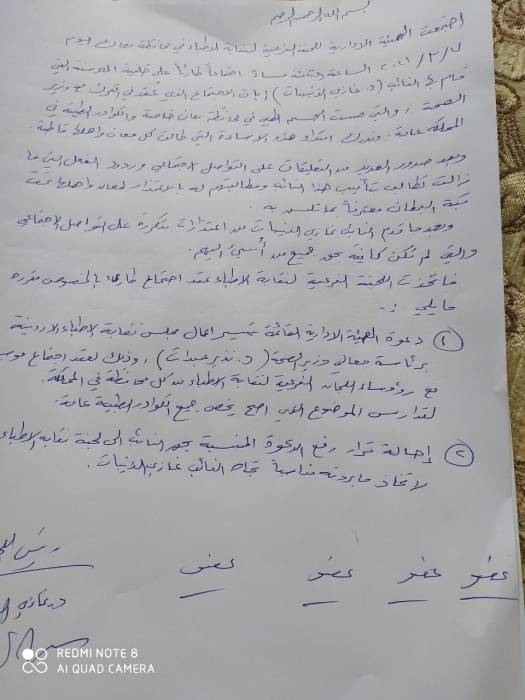 بسم الله الرحمن الرحيم
اجتمعت الهيئة الادارية للجنة الفرعية لنقابة الاطباء في محافظة معان اليوم
٢٠٢١/٣/٧ الساعة الثالثة مساءً اجتماعاً طارئاً على خلفية التي
قام بها النائب (د. غازي الذنيبات) إبان الاجتماع الذي عقد في الكرك مع وزير
الصحة، والتي مست الجسم الطبي في محافظة معان خاصة والكوادر الطبية في
المملكة عامة. وندرك امتداد هذه الاساءة التي طالت كل معان واهلها قاطبة.
وبعد صدور العديد من التعليقات على التواصل الاجتماعي وردود الفعل التي ما
زالت تطالب تأنيب هذا النائب ومطالبتهم له باعتذار لمعان واهلها تحت
قبة البرلمان معترفاً بما به.
وبعدما قدم النائب غازي الذنيبات من اعتذارات متكررة على التواصل الاجتماعي
والتي لم تكن كافية بحق جميع من أُسيئ اليهم.
فاتخذت اللجنة الفرعية لنقابة الاطباء عقد اجتماع طارئ بالخصوص مقرره
مايلي :-
① دعوة الهيئة الادارية القائمة تسيير اعمال مجلس نقابة الاطباء الاردنية
برئاسة معالي وزير الصحة (د. نذير عبيدات)، وذلك لعقد اجتماع
مع رؤوساء اللجان الفرعية لنقابة الاطباء من كل محافظة في المملكة.
لتدارس الموضوع الذي اصبح يخص جميع الكوادر الطبية عامة.
② إحالة قرار رفع الدعوة المنسبة بحق النائب الى لجنة نقابة الاطباء
لاتخاذ مايرونه مناسباً تجاه النائب غازي الذنيبات.
عضو عضو عضو عضو
REDMI NOTE 8
AI QUAD CAMERA